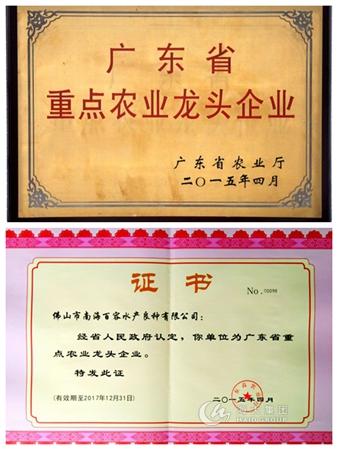 广东省
重点农业龙头企业
广东省农业厅
二〇一五年四月
证书
No.
佛山市南海百容水产良种有限公司：
经省人民政府认定，你单位为广东省重
点农业龙头企业。
特发此证
(有效期至2017年12月31日)
二〇一五年四月
集团